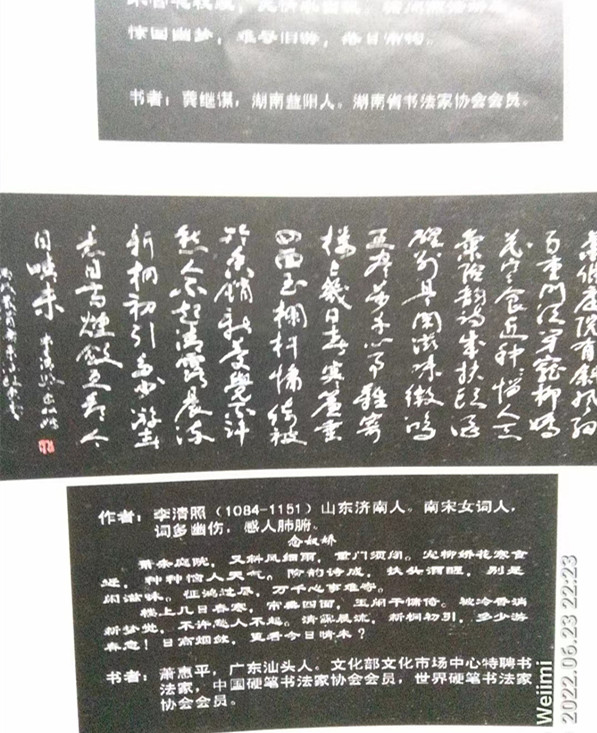 惊回幽梦，难寻旧游，落日帘钩。
书者：龚继谋，湖南益阳人。湖南省书法家协会会员。
萧條庭院有斜風細
雨重門須閉寵柳嬌
花寒食近種種惱人天
氣險韻詩成扶頭酒
醒別是閑滋味徵鴻
過盡萬千心事難寄
樓上幾日春寒簾垂
四面玉欄杆慵倚被
冷香銷新夢覺不許
愁人不起清露晨流
新桐初引多少游春
意日高煙斂更看今
日晴未
作者：李清照（1084-1151）山东济南人。南宋女词人，
词多幽伤，感人肺腑。
念奴娇
萧条庭院，又斜风细雨，重门须闭。宠柳娇花寒食
近，种种恼人天气。险韵诗成，扶头酒醒，别是
闲滋味。征鸿过尽，万千心事难寄。
楼上几日春寒，帘垂四面，玉阑干慵倚。被冷香消
新梦觉，不许愁人不起。清露晨流，新桐初引，多少游
春意！日高烟敛，更看今日晴未？
书者：萧惠平，广东汕头人。文化部文化市场中心特聘书
法家，中国硬笔书法家协会会员，世界硬笔书法家
协会会员。
Weiimi
2022.06.23 22:23